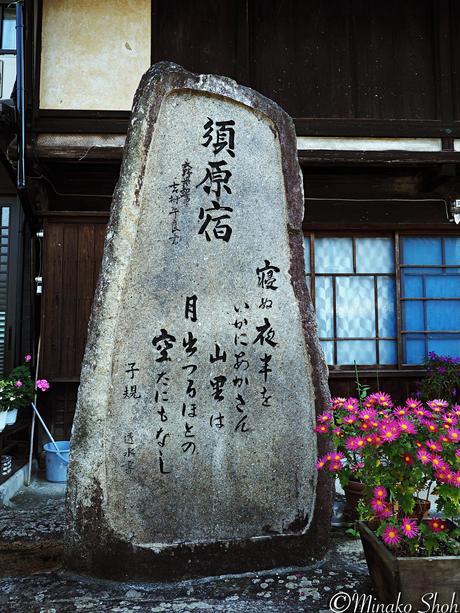 須原宿
長野県知事
吉村午良書
寝ぬ夜半を
いかにあかさん
山里は
月出つるほとの
空たにもなし
子規
©Minako Shoh